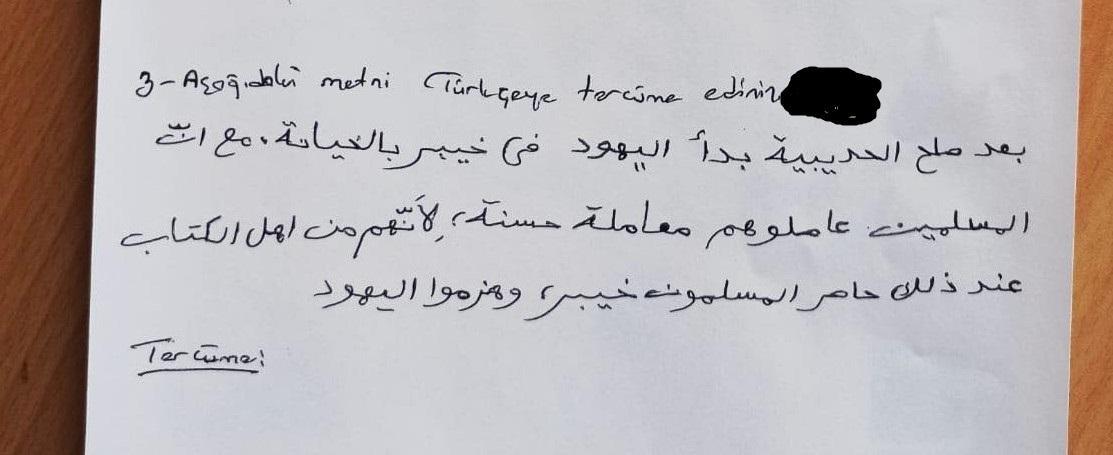 3-Aşağıdaki metni Türkçeye tercüme ediniz
بعد صلح الحديبية بدأ اليهود فى خيبر بالخيانة، مع انّ
المسلمين عاملوهم معاملة حسنة، لِأَنّهم من اهل الكتاب
عند ذلك حاصر المسلمون خيبر، وهزموا اليهود
Tercüme: